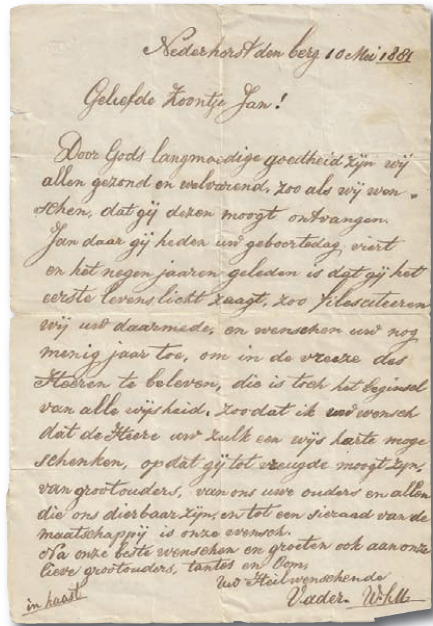 Nederhorst den berg 10 Mei 1881
Geliefde Zoontje Jan!
Door Gods langmoedige goedheid zijn wij
allen gezond en welvarend, zoo als wij wen„
schen, dat gij dezen moogt ontvangen.
Jan daar gij heden uw geboortedag viert
en het negen jaaren geleden is dat gij het
eerste levenslicht zaagt, zoo filesciteeren
wij uw daarmede, en wenschen uw nog
menig jaar toe, om in de vreeze des
Heeren te beleven, die is toch het beginsel
van alle wijsheid. zoo dat ik uw wensch
dat de Heere uw zulk een wijs harte moge
schenken, opdat gij tot vreugde moogt zijn,
van grootouders, van ons uwe ouders en allen
die ons dierbaar zijn, en tot een sieraad van de
maatschappij is onze wensch.
Na onze beste wenschen en groeten ook aan onze
lieve grootouders, tantes en Oom,
Uw Heilwenschende
in haast
Vader.